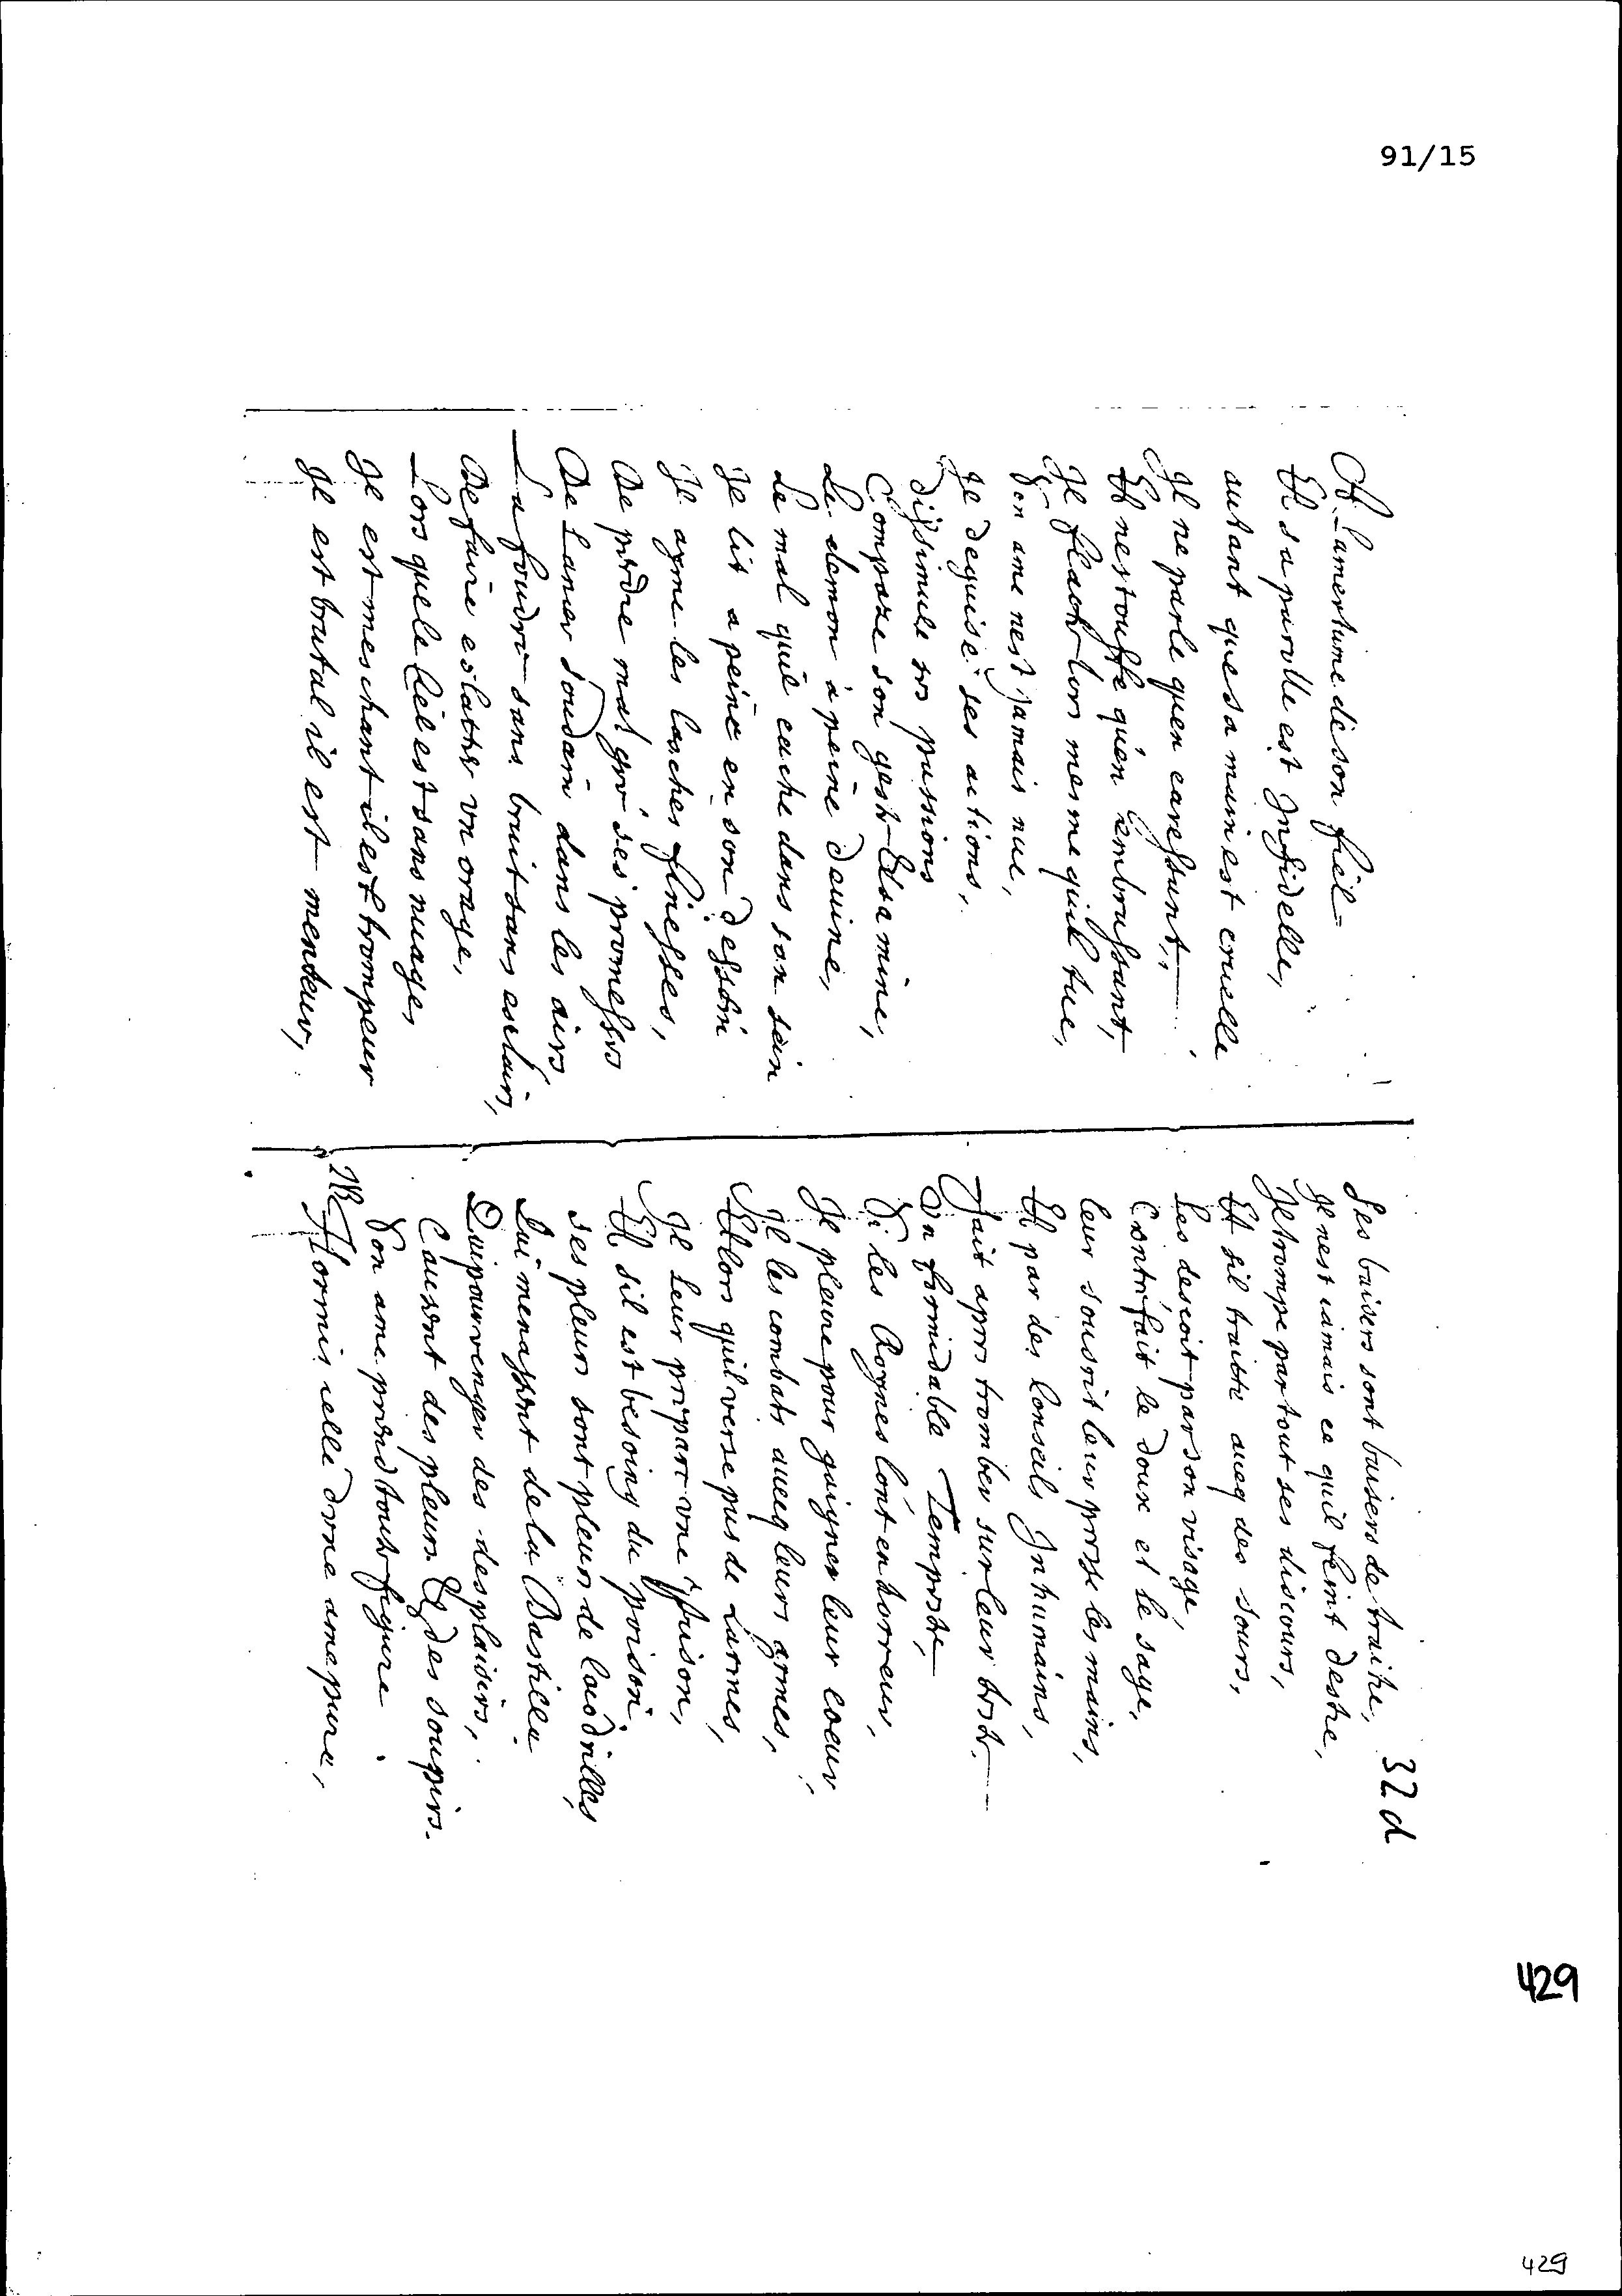 91/15
A Lamertume de son fiel
Et sa parolle est Infidelle,
autant que sa main est cruelle
Il ne parle quen caressant,
Et nestouffe qu'en embrassant,
Il flacte lors mesme quil tue,
Son ame nest jamais nue,
Il deguise ses actions,
dissimule ses passions
Compoze son geste Et sa mine,
Le demon à peine devine,
Le mal quil cache dans son sein
Il lit a peine en son dessein
Il ayme les lasches finesses,
De perdre mal gré ses promesses
De Lancer soudain dans les airs
La foudre sans bruit sans esclairs,
De faire eslatter vn orage,
Lors que le Ciel est sans nuage,
Il est meschant il est trompeur
Il est brutal il est menteur,
32 d
Ses baisers sont baisers de traitre,
Il nest iamais ce quil feint destre,
Il trompe par tout ses discours,
Et sil traitte aueq des sours,
Les descoit par son visage,
Contrefait le doux et le sage,
Leur sousrit leur presse les mains,
Et par des Conseils Inhumains,
Fait apres tromber sur leur teste
Vn formidable Tempeste
Si les Roynes lont en horreur,
Il pleure pour gaigner leur coeur
Il les combats aueq leurs armes,
Et lors quil verse pas de Larmes,
Il Leur prepare vne prison,
Et sil est besoing du poison
ses pleurs sont pleurs de Cocodrilles
Qui menassent de la Bastille
Qui pour venger des desplaisirs,
Causent des pleurs Et des soupirs.
Son ame prend toute figure
NB Hormis celle dvne ame pure,
429
429